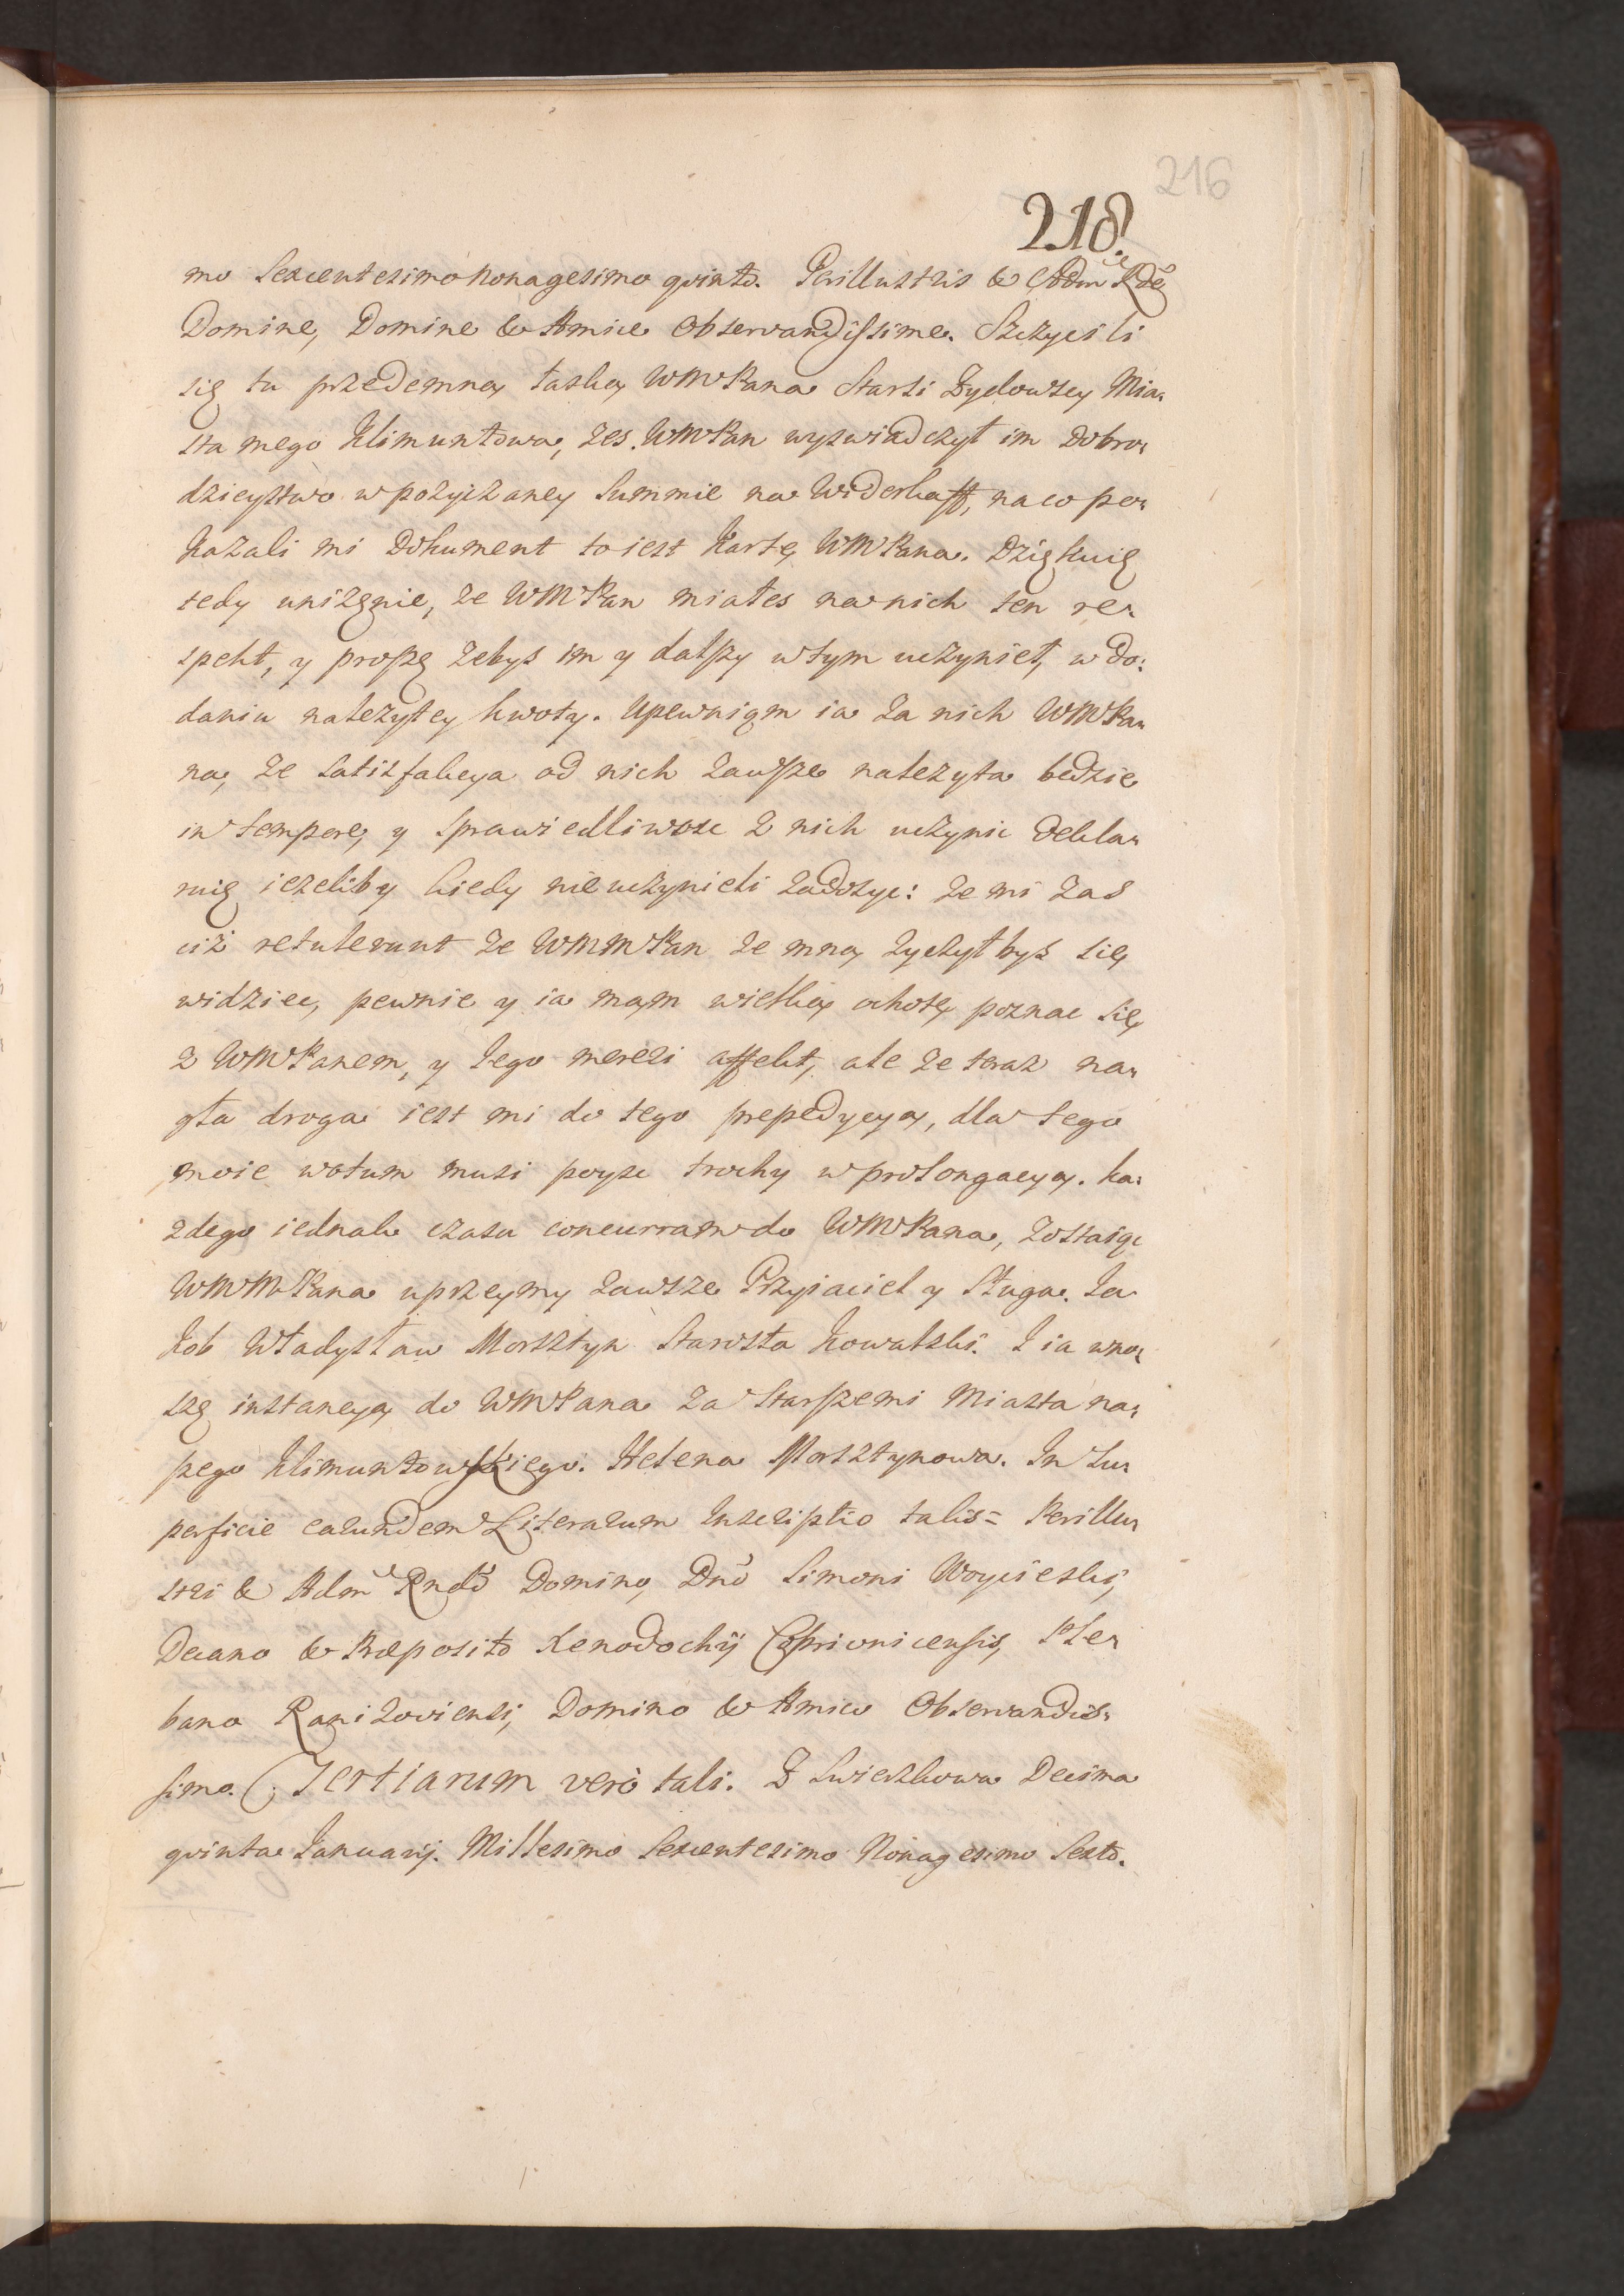 216
218.
mo Sexcentesimo Nonagesimo qvinto. Perillustris & Adm Rde
Domine, Domine & Amice Observandissime. Szczycili
się tu przedemną łaską WMPana Starsi Zydowscy Mia-
sta mego Klimuntowa, zes WMPan wyswiadczył im Dobro-
dzieystwo w pozyczaney Summie na Widerkaff, na co po-
kazali mi Dokument to iest Kartę WMPana. Dziękuię
tedy unizęnie, ze WMPan miałes na nich ten re-
spekt, y proszę zebys im y dalszy w tym uczynieł, w do-
daniu nalezytey kwoty. Upewniąm ia za nich WMPa-
na, ze satisfakcya od nich zawsze nalezyta bedzie
in tempore, y sprawiedliwosc z nich uczynic dekla-
ruię iezeliby kiedy nie uczynieli zadosyc: ze mi zas
ciż retulerunt ze WMMPan ze mną zyczył bys się
widziec, pewnie y ia mąm wielką ochotę poznac się
z WMPanem, y Iego mereri affekt, ale ze teraz na-
gła droga iest mi do tego prepedycyą, dla tego
moie wotum musi poysc trochy w prolongacyą. ka-
zdego iednak czasu concurram do WMPana, zostaięc
WMMPana uprzeymy zawsze Przyiaciel y Sługa. Ia-
kob Władysław Morsztyn Starosta Kowalski. I ia wno-
szę instancyą do WMPana za Starszemi Miasta na-
szego Klimuntowskiego. Helena Morsztynowa. In su-
perficie earundem Literarum Inscriptio talis= Perillu-
stri & Adm Rndo Domino, Dno Simoni Woycieski,
Decano & Præposito Xenodochij Copriunicensis, Ple-
bano Ranizoviensi, Domino & Amico Observandis-
simo. Tertiarum verò tali. Z Swierzkowa Decima
qvinta Ianuarij. Millesimo Sexcentesimo Nonagesimo Sexto.